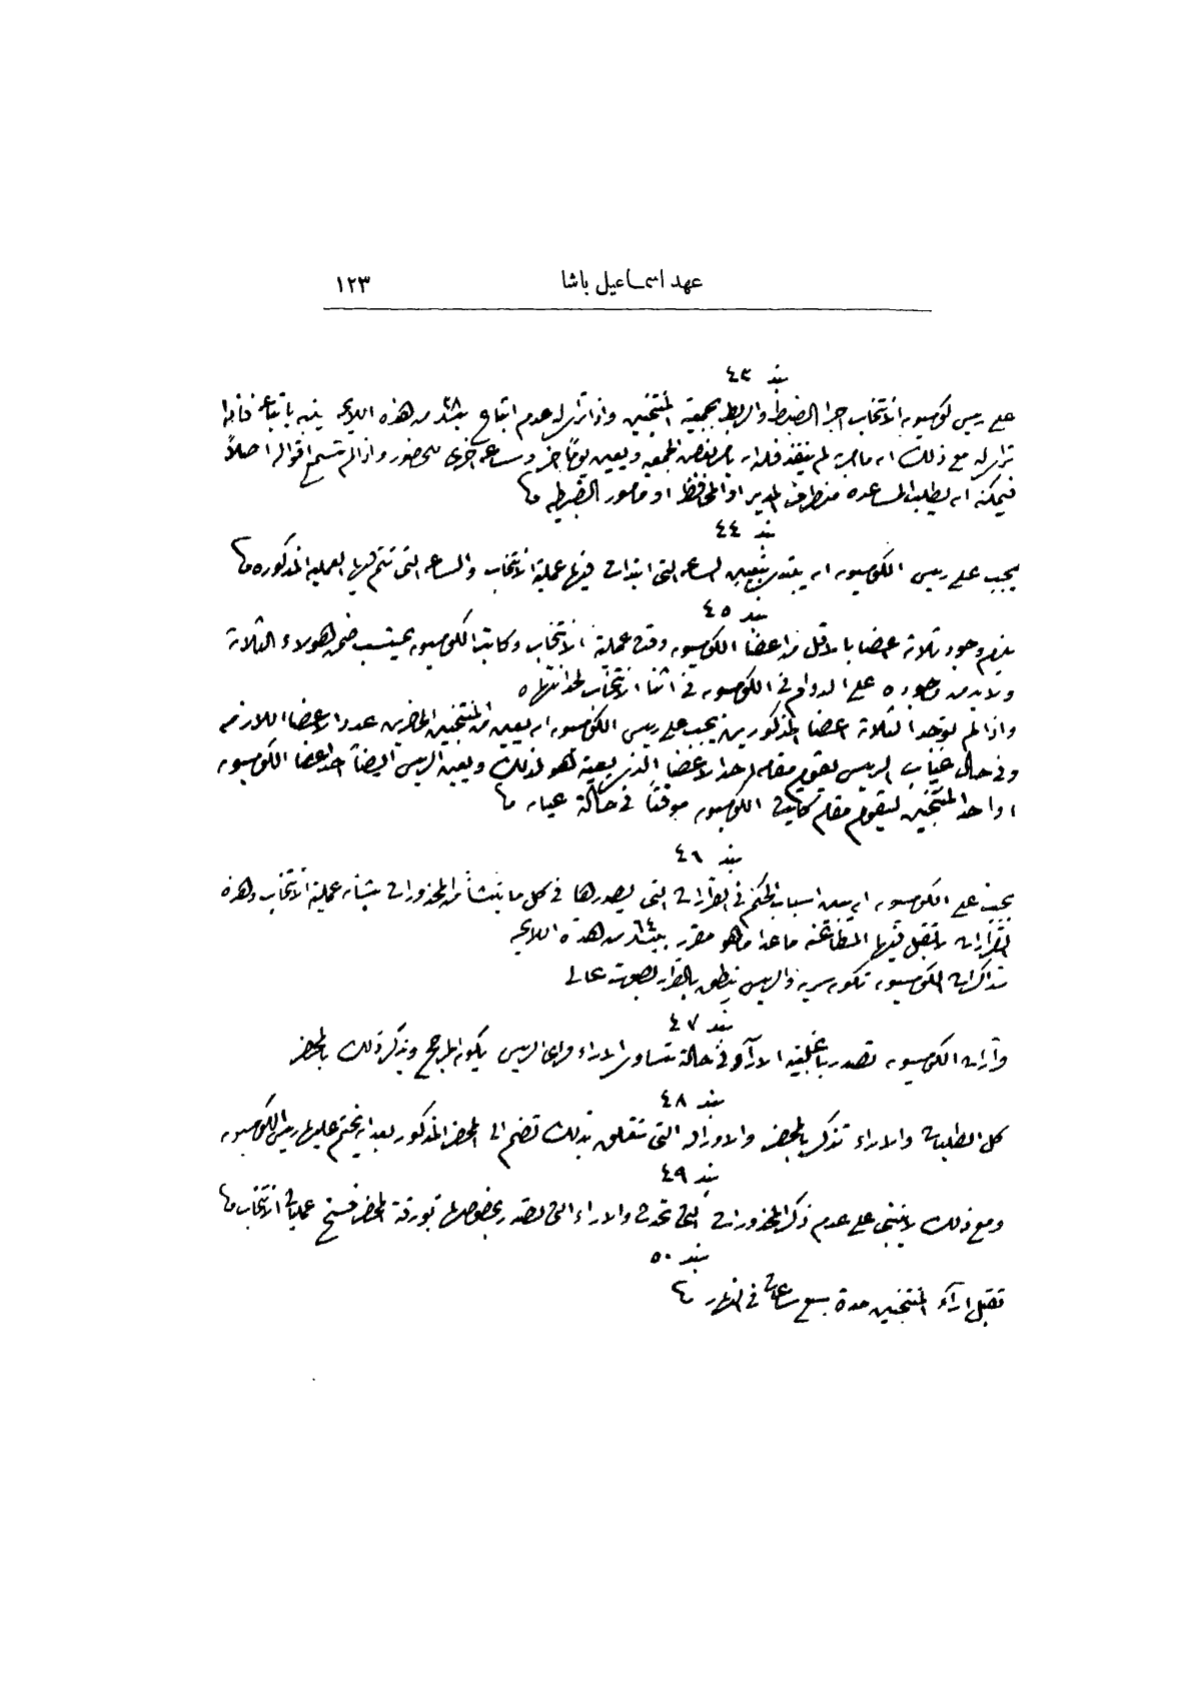 عهد اسماعيل باشا ١٢٣
بند ٤٣
على ريس قومسيون الانتخاب اجرا الضبط والربط بجمعية المنتخبين واذا تراى له عدم اتباع بند ٣٨ من هذه اللايحه ينبه باتباعه فاذا
تراى له مع ذلك ان ما امر به لم ينفذ فله ان يامر بفض الجمعيه ويعين يوماً اخر وساعه اخرى للحضور واذا لم تسمع اقواله اصلاً
فيمكنه ان يطلب المساعده من طرف المدير او المحافظ او مامور الضبطيه
بند ٤٤
يجب على ريس الكومسيون ان يبتدى بتعيين الساعه التى ابتدات فيها عملية الانتخاب والساعه التى تتم فيها العمليه المذكوره
بند ٤٥
يلزم وجود ثلاثة اعضا بالاقل من اعضا الكومسيون وقت عملية الانتخاب وكاتب الكومسيون يحتسب ضمن هولاء الثلاثة
ولا بد من وجوده على الدوام فى الكومسيون فى اثنا الانتخاب لحد انتهاه
واذا لم يوجد الثلاثة اعضا المذكورين يجب على ريس الكومسيون ان يعين من المنتخبين الحاضرين عدد الاعضا اللازمه
وفى حال غياب الريس يقوم مقامه احد الاعضا الذى يعينه هو لذلك ويعين الريس ايضاً احد اعضا الكومسيون
او احد المنتخبين ليقوم مقام كاتب الكومسيون موقتاً فى حالة غيابه
بند ٤٦
يجب على الكومسيون ان يبين اسباب الحكم فى القرارات التى يصدرها فى كل ما ينشأ من المحذورات بشأن عملية الانتخاب وهذه
القرارات لا تقبل فيها المطاعنه ماعدا ما هو مقرر ببند ٦٤ من هذه اللايحه
مذاكرات الكومسيون تكون سريه والريس ينطق بالقرار بصوت عالى
بند ٤٧
قرارات الكومسيون تصدر باغلبية الارآء وفى حالة تساوى الاراء فراى الريس يكون المرجح ويذكر ذلك بالمحضر
بند ٤٨
كل الطلبات والاراء تذكر بالمحضر والاوراق التى تتعلق بذلك تضم الى المحضر المذكور بعد ان يختم عليها ريس الكومسيون
بند ٤٩
ومع ذلك لا ينبنى على عدم ذكر المحذورات التى تحدث والاراء التى تصدر بخصوصها بورقة المحضر فسخ عمليات الانتخاب
بند ٥٠
تقبل ارآء المنتخبين مدة سبع ساعات فى النهار